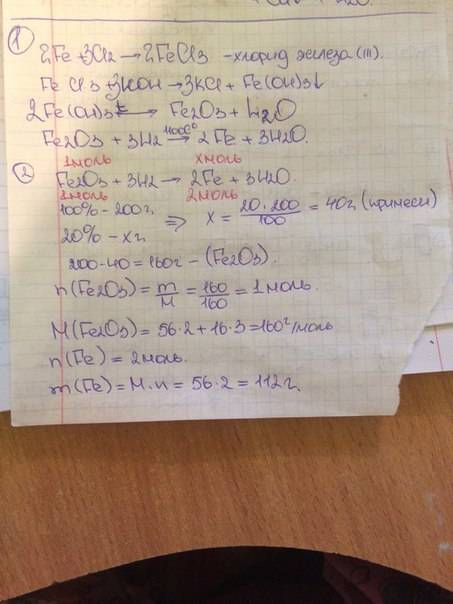 ① 2Fe + 3Cl2 → 2FeCl3 - хлорид железа (III).
FeCl3 + 3KOH → 3KCl + Fe(OH)3↓
2Fe(OH)3 t→ Fe2O3 + H2O
Fe2O3 + 3H2 → 2Fe + 3H2O.
1моль хмоль
② Fe2O3 + 3H2 → 2Fe + 3H2O.
1моль 2моль
100% - 200г. ⇒ x = 20·200/100 = 40г (примеси)
20% - xг.
200-40 = 160г - (Fe2O3).
n(Fe2O3) = m/M = 160/160 = 1моль.
M(Fe2O3) = 56·2 + 16·3 = 160г/моль
n(Fe) = 2моль.
m(Fe) = M·n = 56·2 = 112г.